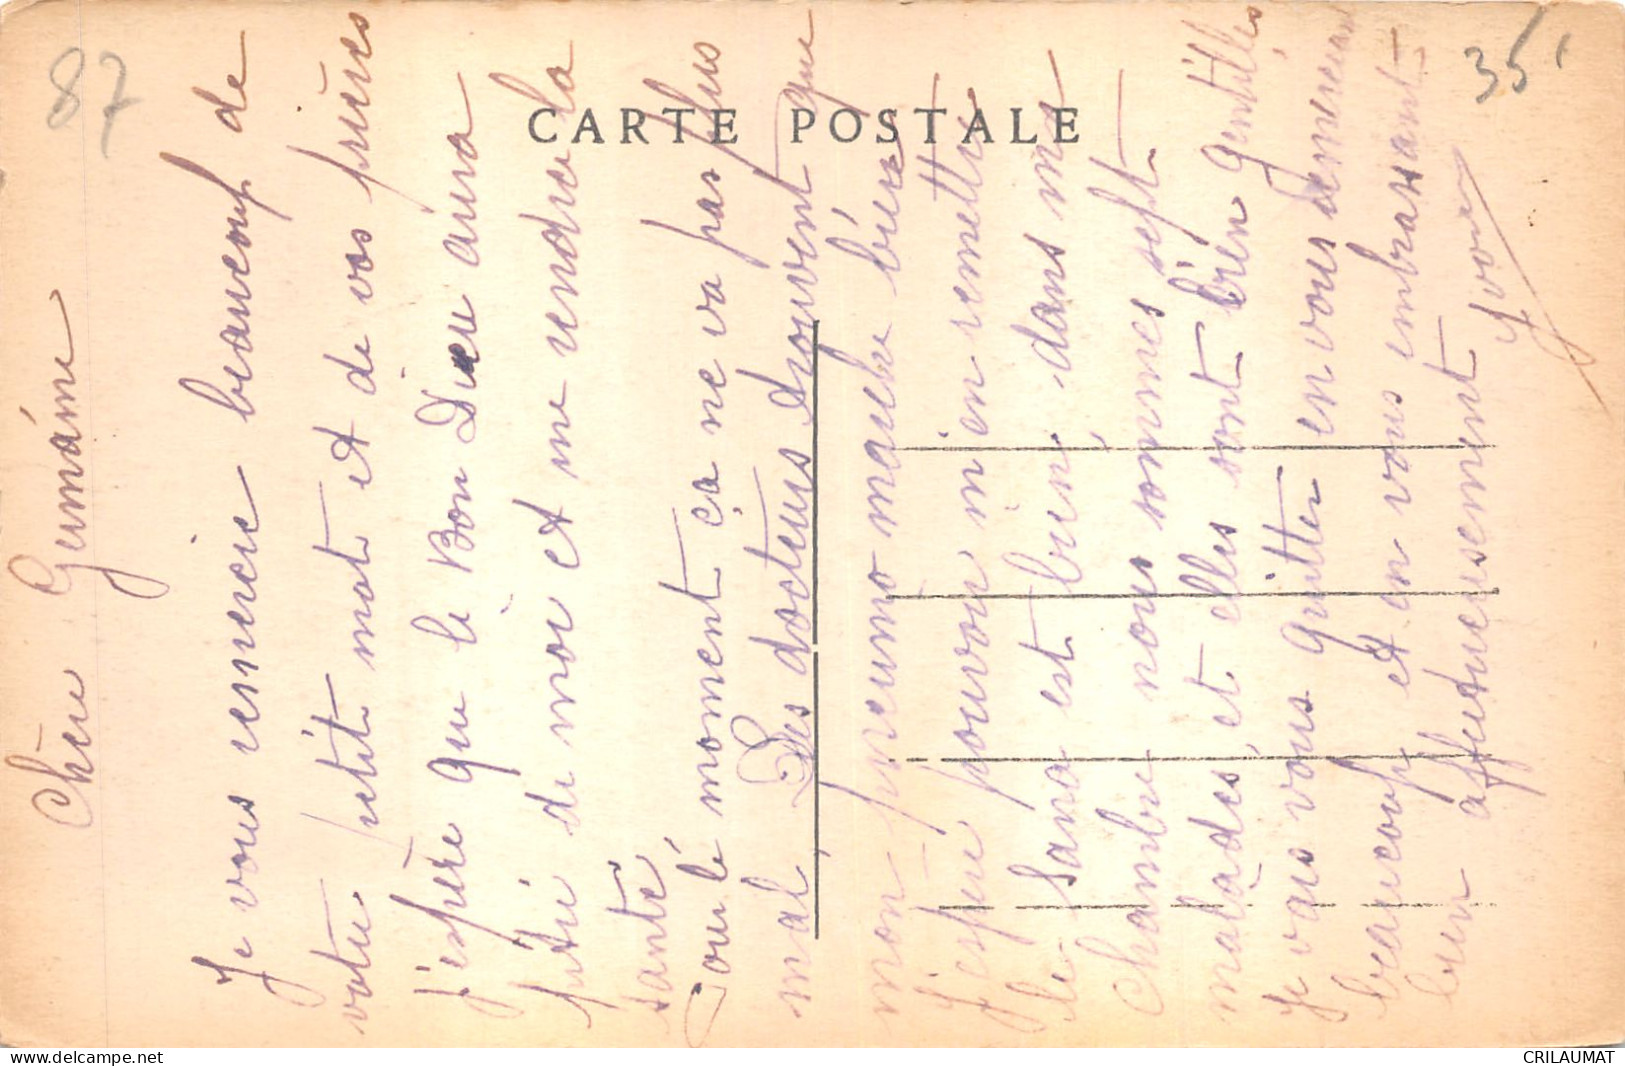 87
35
CARTE POSTALE
Chère Germaine
Je vous remercie beaucoup de
votre petit mot et de vos prières
j'espère que le Bon Dieu aura
pitié de moi et me rendre la
santé
Pour lé moment ça ne va pas plus
mal, Les docteurs trouvent que
mon pneumo marche bien
J'espère pouvoir m'en remettre
le Sana est bien, dans ma
chambre nous sommes sept
malades, et elles sont bien gentilles
Je vais vous quitter en vous remerciant
beaucoup et en vous embrassant
bien affectueusement Yvonne
© delcampe.net
CRILAUMAT